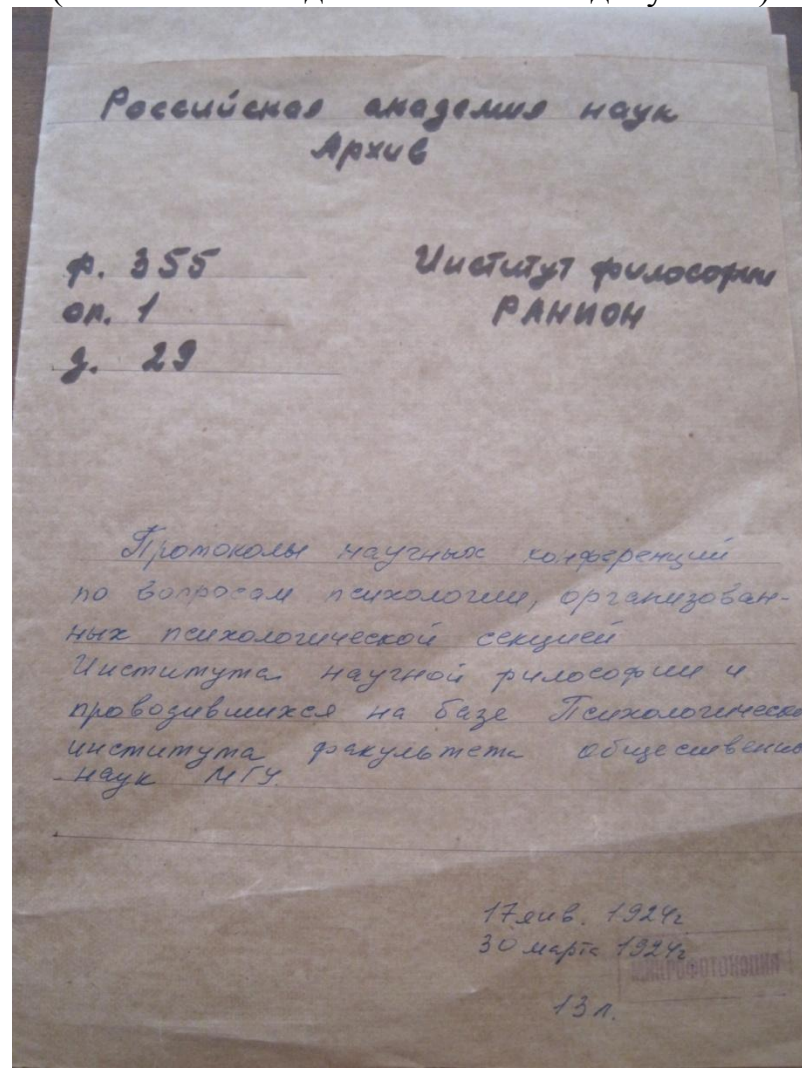 Российская академия наук
Архив
ф. 355
оп. 1
д. 29
Институт философии
РАНИОН
Протоколы научных конференций
по вопросам психологии, организован-
ных психологической секцией
Института научной философии и
проводившихся на базе Психологическо
института факультета обществен
наук МГУ.
17 янв. 1924г
30 марта 1924г
МИКРОФОТОКОПИЯ
13 л.